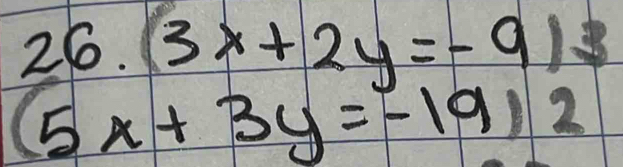 26. (3x + 2y = -9) 3
(5x + 3y = -19) 2